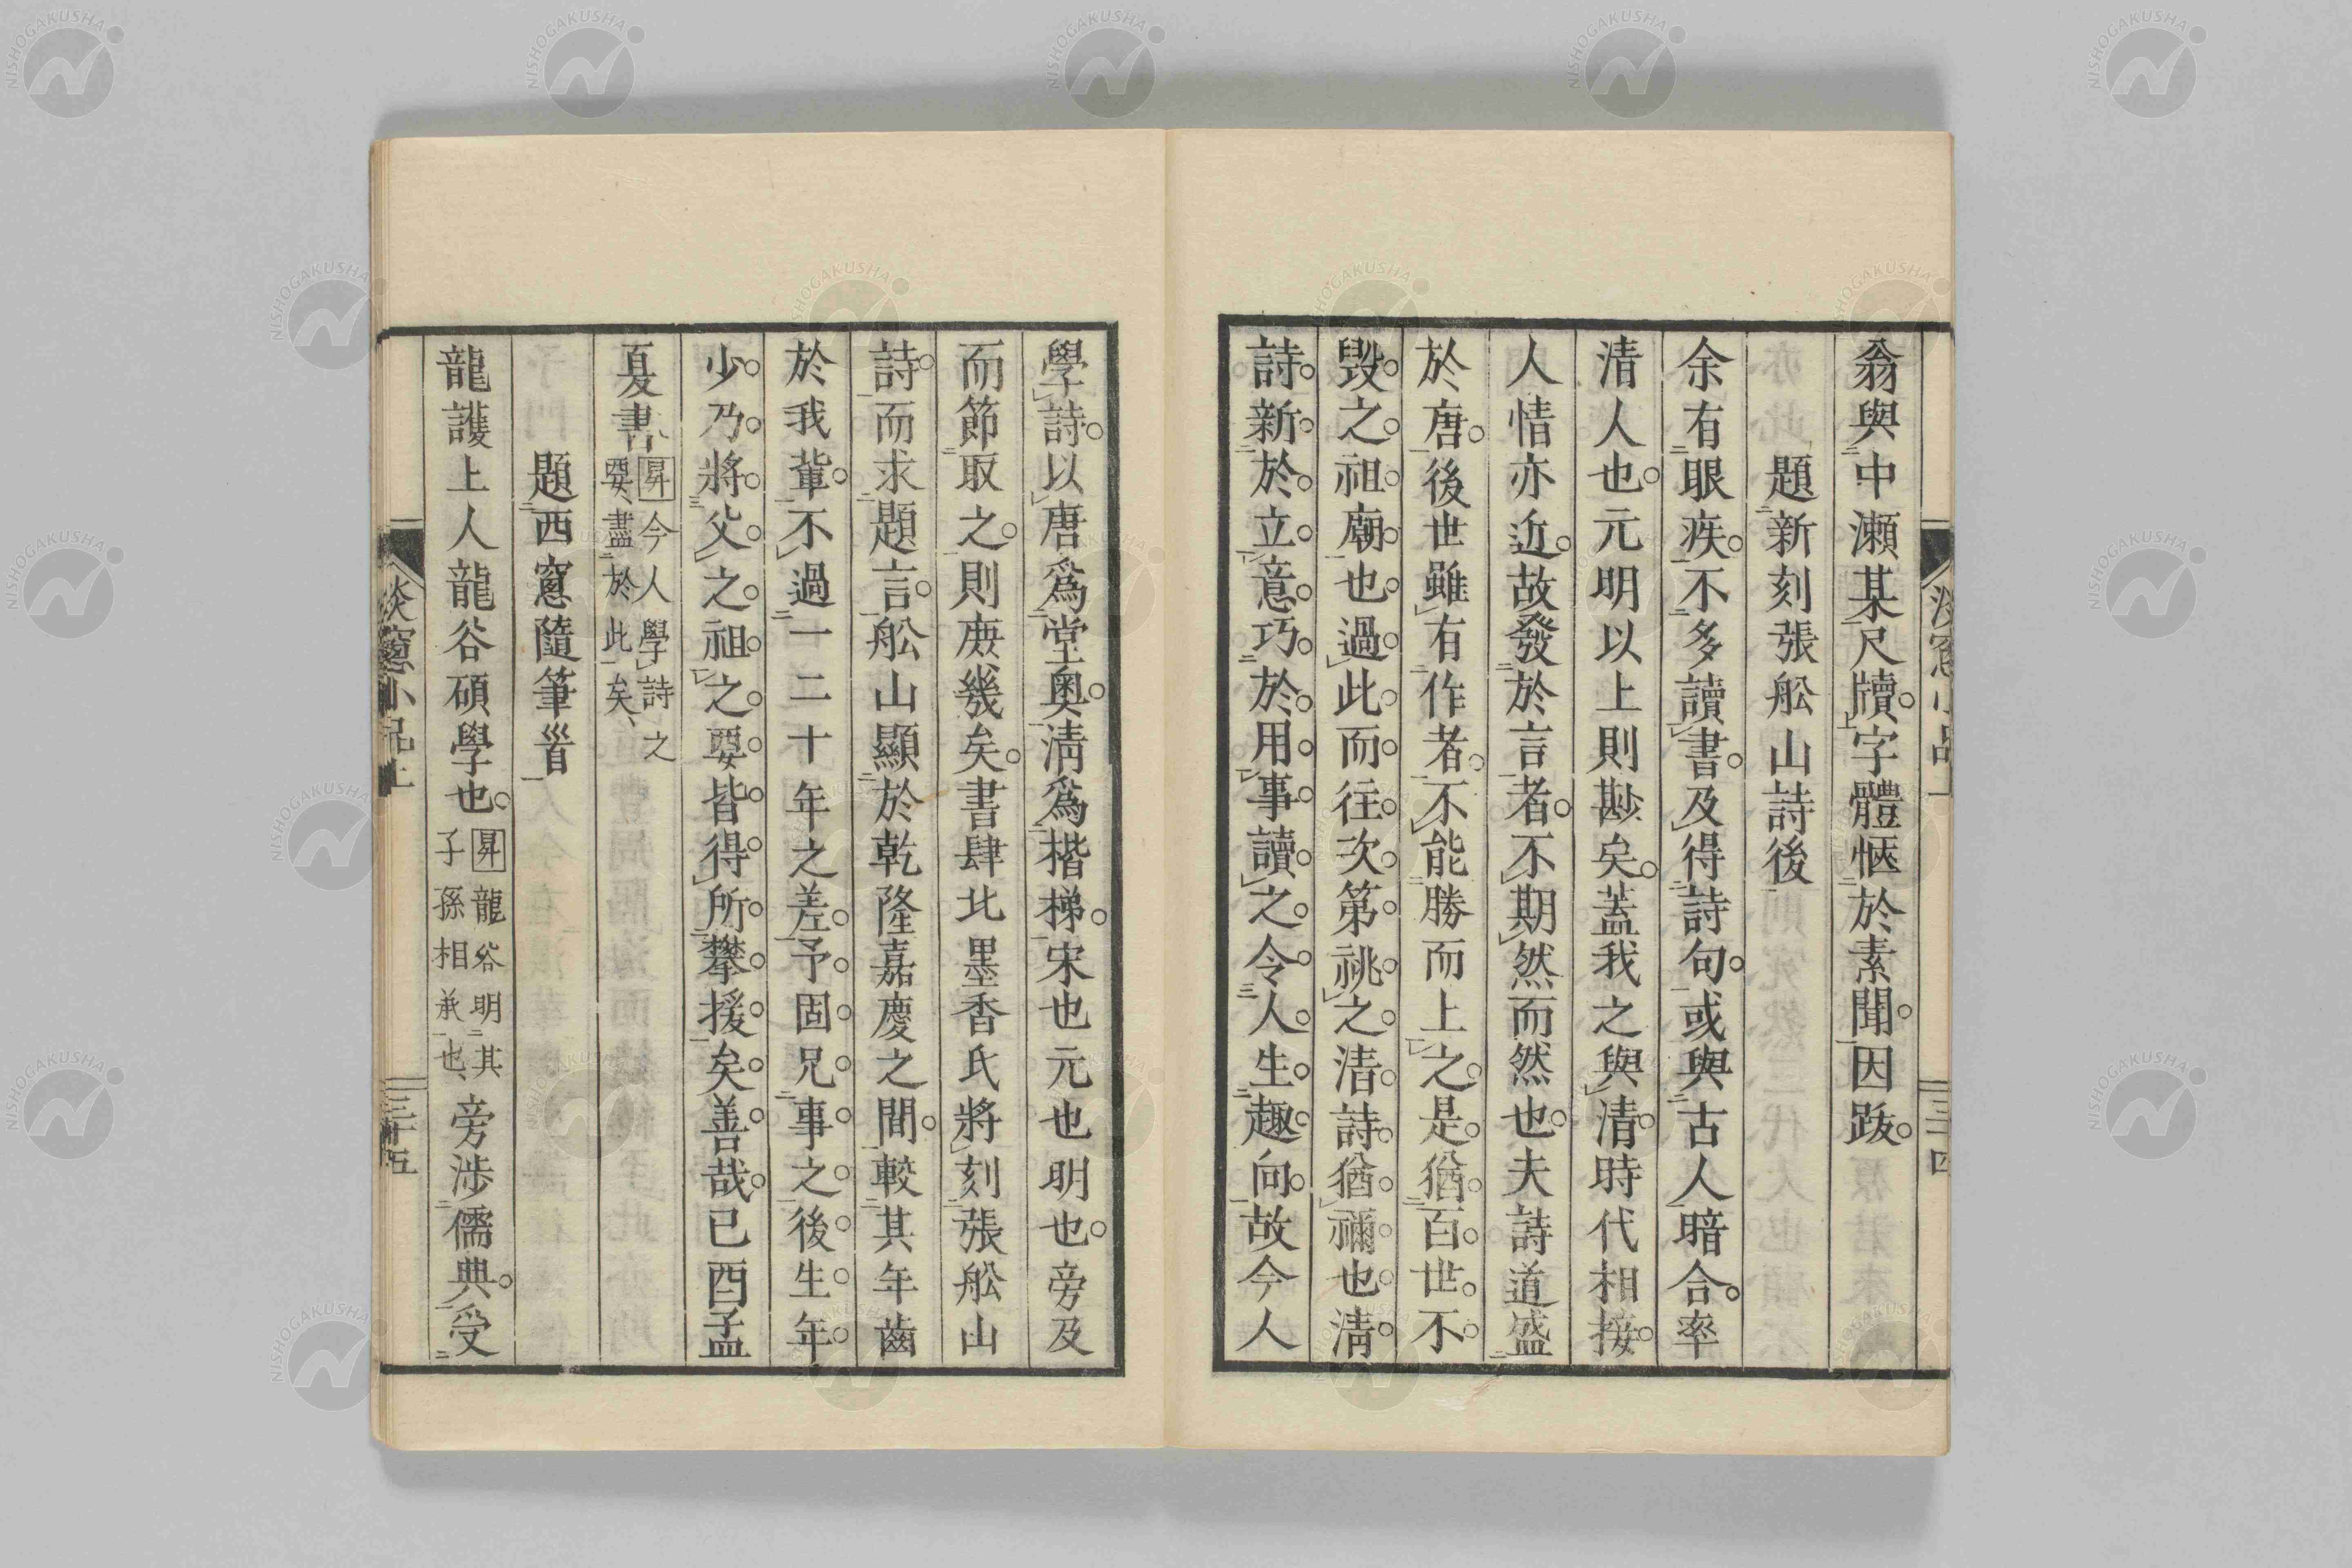 翁與中瀬某尺牘字體愜於素聞因跋
題新刻張船山詩後
余有眼疾不多讀書及得詩句或與古人暗合率
清人也元明以上則尠矣蓋我之與清時代相接
人情亦近故發於言者不期然而然也夫詩道盛
於唐後世雖有作者不能勝而上之是猶百世不
毀之祖廟也過此而往次第祧之清詩猶禰也清
詩新於立意巧於用事讀之令人生趣向故今人
淡窓小品上
三十四
學詩以唐爲堂奧清爲楷梯宋也元也明也旁及
而節取之則庶幾矣書肆北墨香氏將刻張船山
詩而求題言船山顯於乾隆嘉慶之間較其年齒
於我輩不過一二十年之差予固兄事之後生年
少乃將父之祖之要皆得所攀援矣善哉已酉孟
夏書
昇今人學詩之
要盡於此矣
題西窻隨筆首
龍護上人龍谷碩學也
昇龍谷明其
子孫相承也
旁涉儒典受
淡窻小品上
三十五
NISHOGAKUSHA